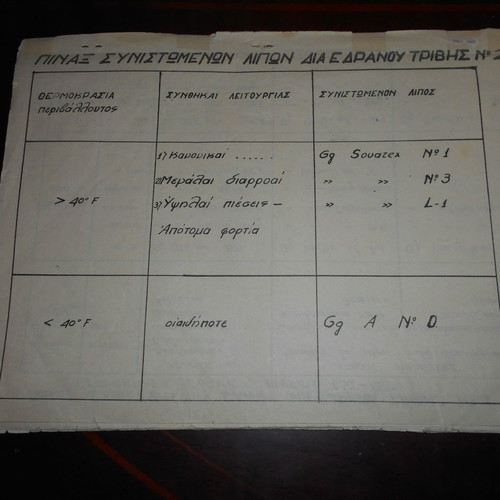 ΠΙΝΑΞ ΣΥΝΙΣΤΩΜΕΝΩΝ ΛΙΠΩΝ ΔΙΑ ΕΔΡΑΝΟΥ ΤΡΙΒΗΣ Νº 2
ΘΕΡΜΟΚΡΑΣΙΑ
περιβάλλοντος
ΣΥΝΘΗΚΑΙ ΛΕΙΤΟΥΡΓΙΑΣ
ΣΥΝΙΣΤΩΜΕΝΟΝ ΛΙΠΟΣ
> 40° F
1) Κανονικαί ......
2) Μεγάλαι διαρροαί
3) Υψηλαί πιέσεις –
Απότομα φορτία
Gg Sovarex Nº 1
» » Nº 3
» » L-1
< 40° F
οιαιδήποτε
Gg A Nº 0